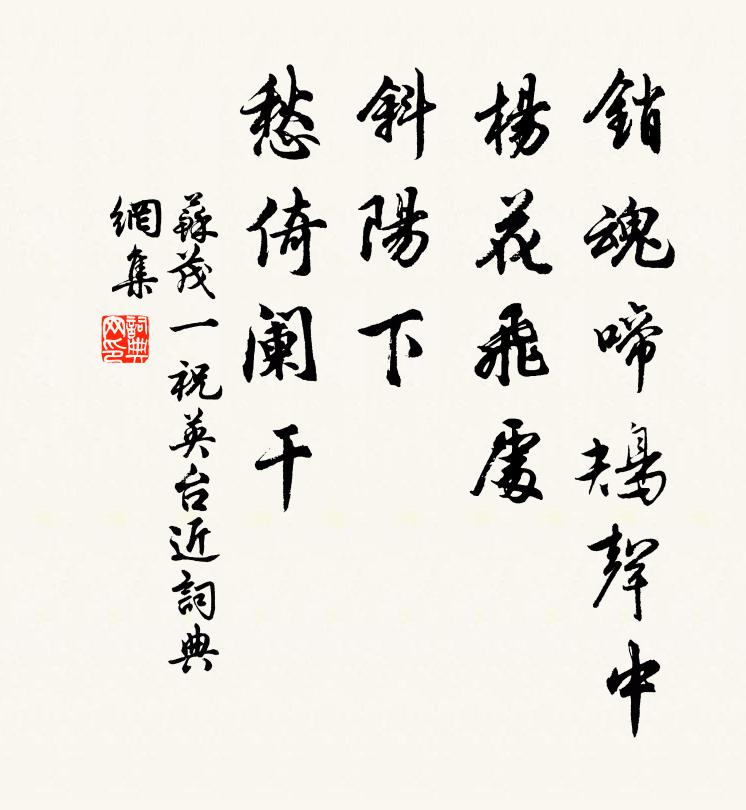 銷魂啼鴂聲中
楊花飛處
斜陽下
愁倚闌干
蘇茂一祝英台近詞典
網集
詞典
网印